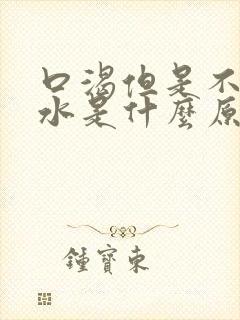 口渴但是不
水是什麼原
鍾寶東